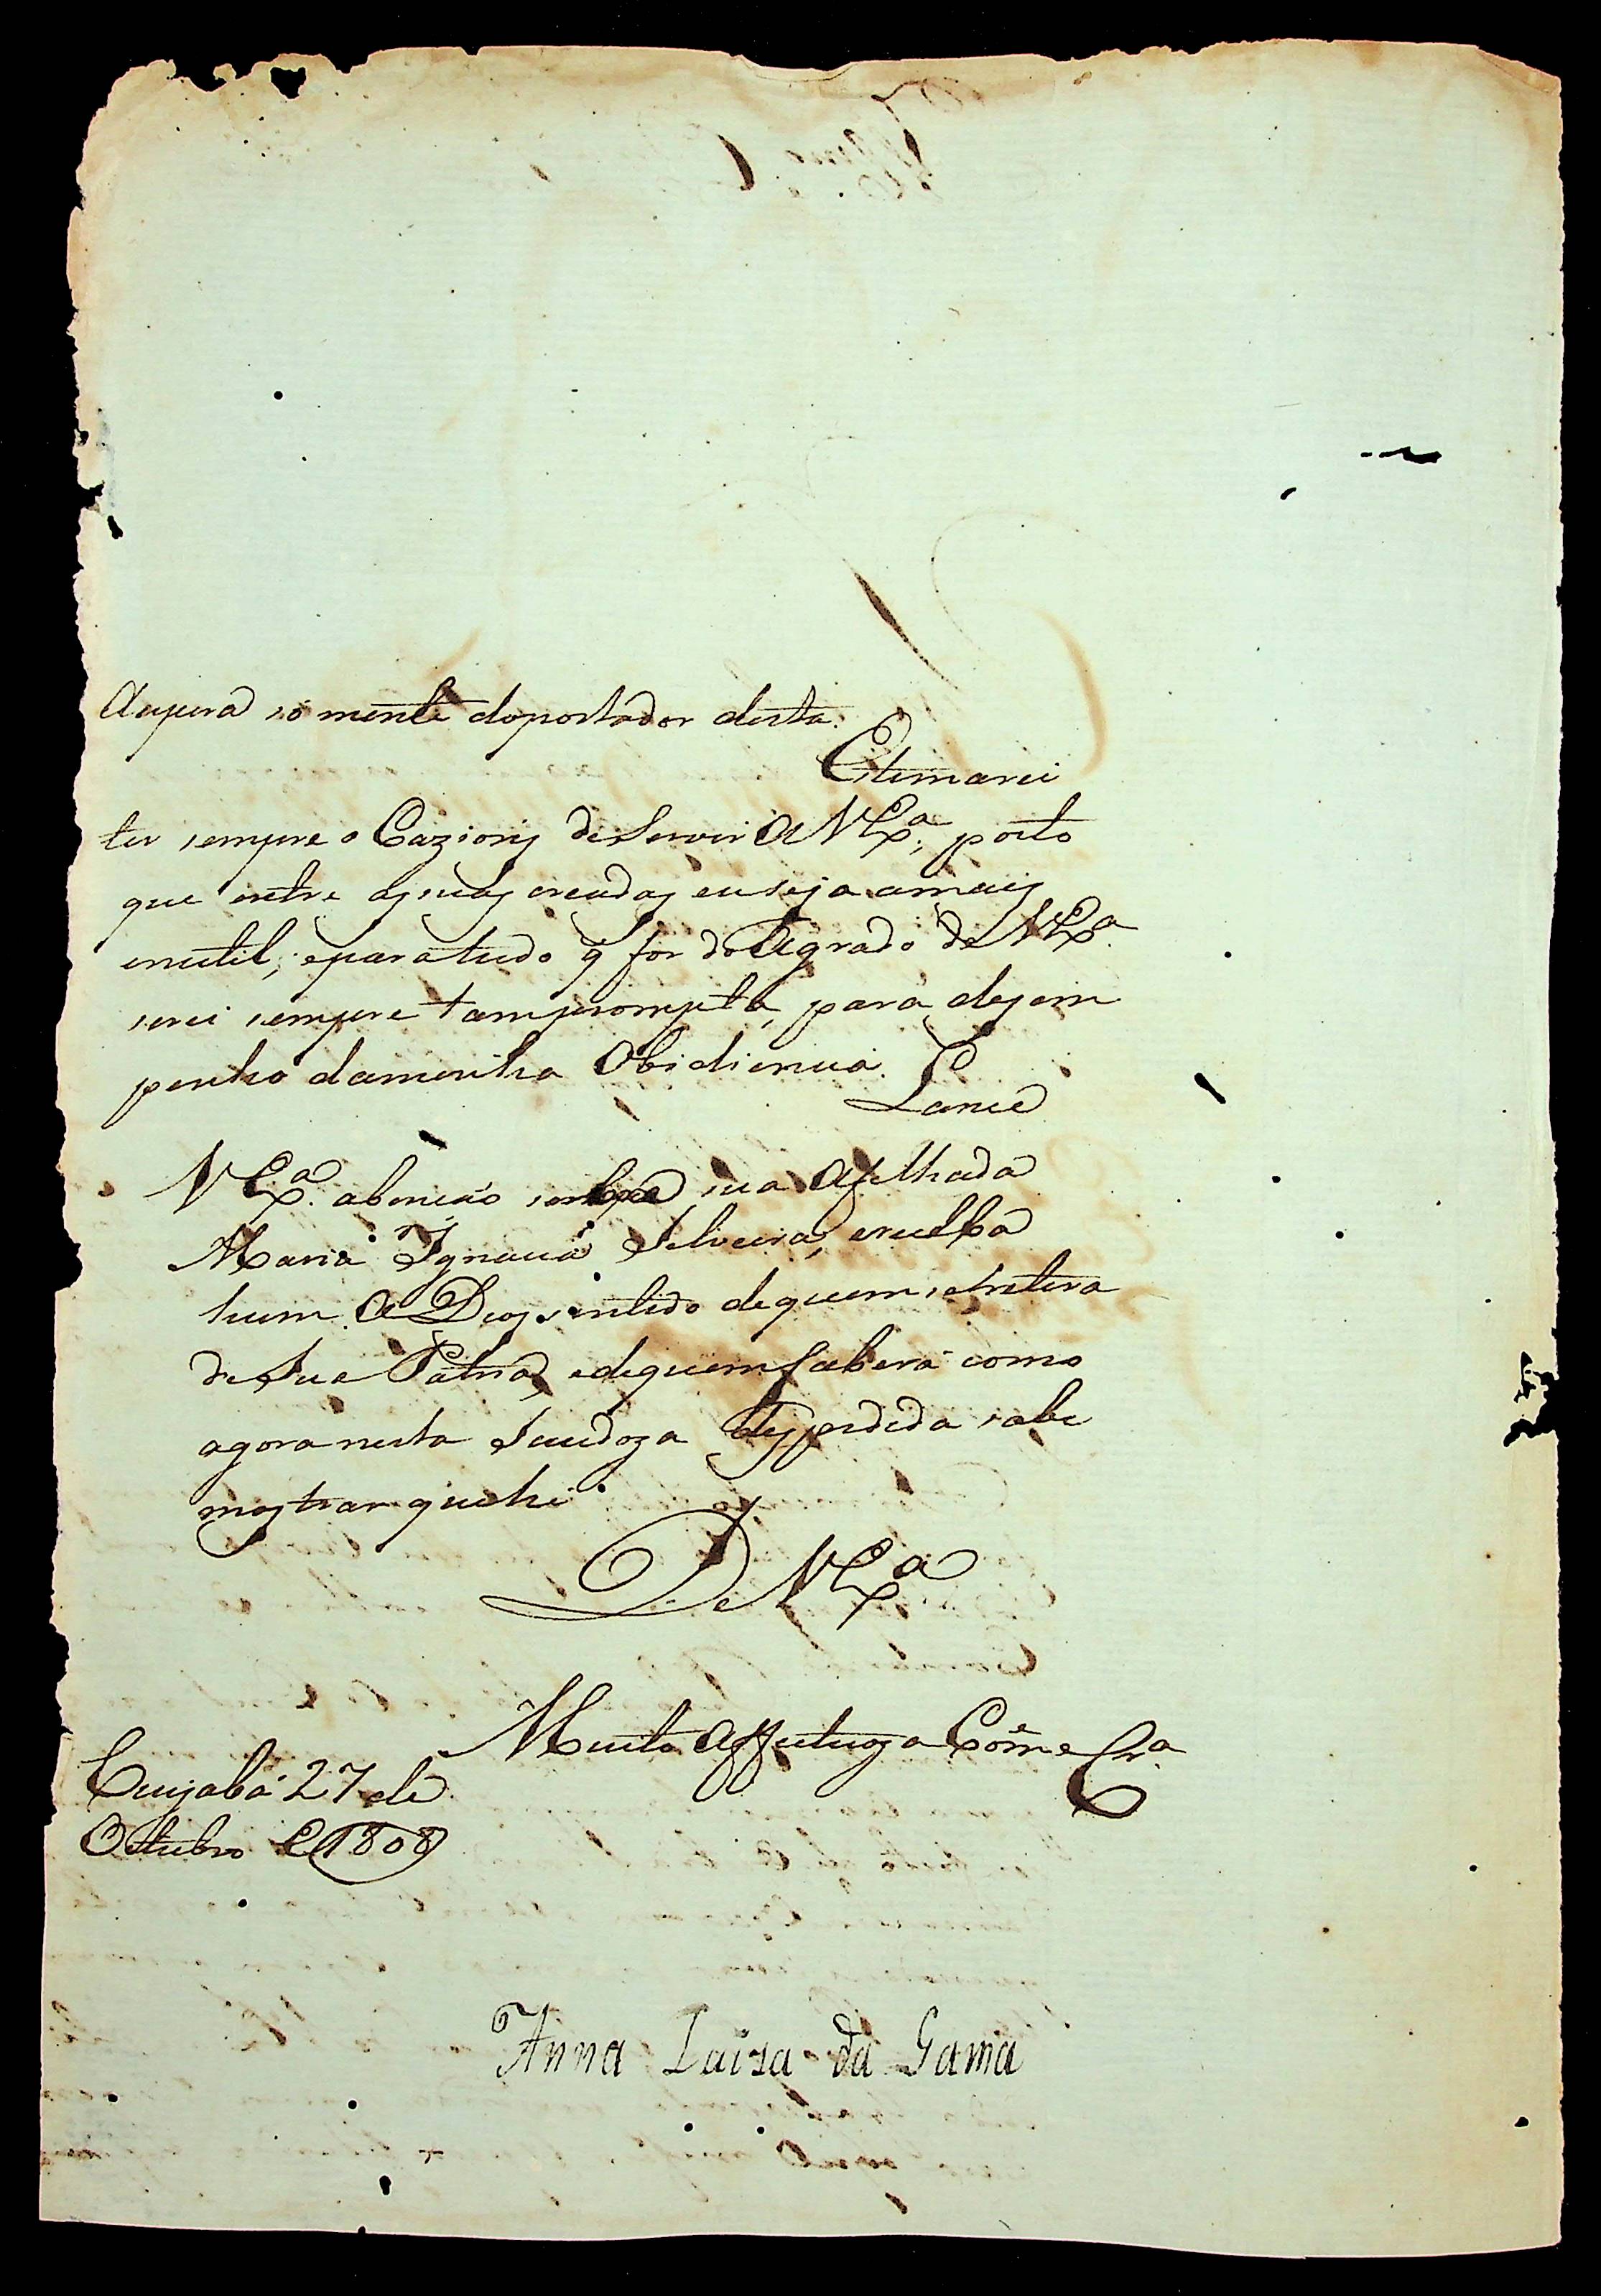 só mente doportador desta.
Estimarei
ter sempre o Cazioens de Servir A VEx.ª, posto
que entre as suas creadas eu seja amais
inutil, eparatudo q̃ for do Agrado de VEx.ª
serei sempre tam prompta, para desem
penho daminha Obidiencia. Lance
VEx.ª abencão sobre sua Afilhada
Maria Ignacia Silveira, erecebá
hum A Deos sentido dequem
de Sua Patria, edequem saberá como
agora nesta Saudoza Despedida sabe
mostrar que he
De VEx.ª
Muito Affetuoza Com.e Cr.ª
Cuyabá 27 de
Outubro de 1808
Anna Luisa da Gama